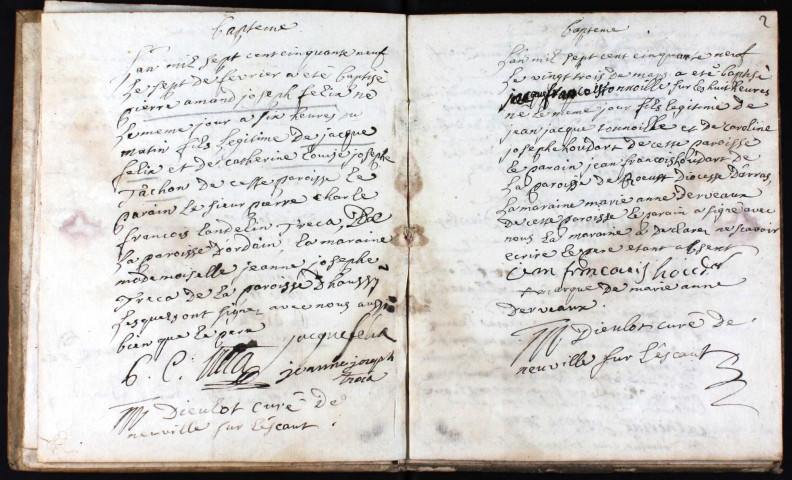 bapteme
Lan mil sept cent cinquante neuf
Le sept de fevrier a eté baptisé
pierre amand joseph felix né
le meme jour a six heures du
matin fils legitime de jacque
felix et de catherine Louise josephe
Tachon de cette paroisse le
parain le sieur pierre charle
francois landelin Treca, de
La paroisse dordain la maraine
mademoiselle jeanne josephe
Treca de La paroisse dhaussi
Lesquels ont signé avec nous aussi
bien que le pere
jacque felix
jeanne joseph
treca
Dieulot curé de
neuville sur lescaut
2
bapteme
Lan mil sept cent cinquante neuf
Le vingt trois de mars a eté baptisé
jacque francois tonnoille sur les huit heures
né le meme jour fils legitime de
jean jacque tonnoille et de caroline
josephe houdart de cette paroisse
le parain jean francois houdart de
La paroisse de Roeust Diocese Darras,
La maraine marie anne derveaux
de cette paroisse le parain a signé avec
nous la maraine a declarez ne scavoir
ecrire le pere etant absent
jean francois houdar
marque de marie anne
derveaux
Dieulot curé de
neuville sur lescaut